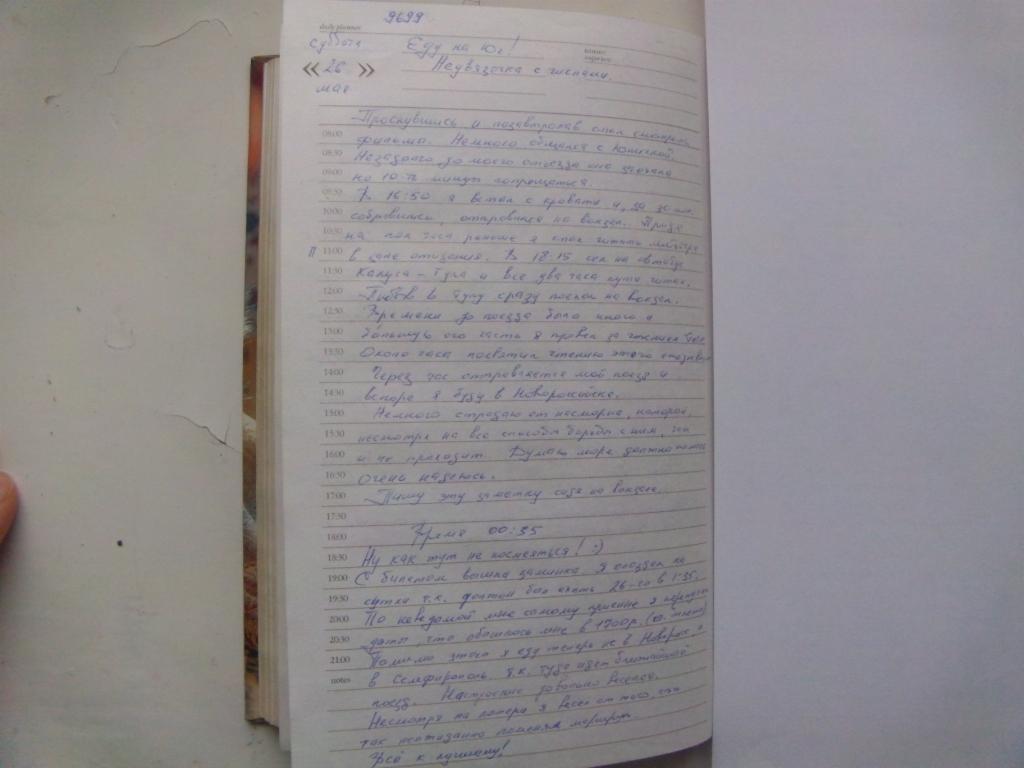 9699
суббота
Еду на Юг!
« 26 »
Недвязочка с числами.
мая
Проснувшись и позавтракав стал смотреть
08:00
фильмы. Немного общался с
08:30
Незадолго до моего отъезда она
09:00
на 10-ть минут попрощаться.
09:30
В 16:50 я встал с кровати и, за
10:00
собравшись, отправился на вокзал. Придя
10:30
на пол часа раньше я стал читать
11:00
в зале ожидания. В 18:15 сел на автобус
11:30
Калуга - Тула и все два часа пути читал.
12:00
Прибыв в Тулу сразу поехал на вокзал.
12:30
Времени до поезда было много и
13:00
большую его часть я провел за чтением
13:30
Около часа посвятил чтению этого
14:00
Через час отправляется мой поезд и
14:30
вскоре я буду в Новороссийске.
15:00
Немного страдаю от насморка, который,
15:30
несмотря на все способы борьбы с ним, так
16:00
и не проходит. Думаю море должно помочь
16:30
очень надеюсь.
17:00
Пишу эту заметку сидя на вокзале.
17:30
18:00
Время 00:35
18:30
Ну как тут не посмеяться! :)
19:00
С билетом вышла заминка. Я опоздал на
19:30
сутки т.к. должен был ехать 26-го в 1:35.
20:00
По неведомой мне самому причине я перепутал
20:30
даты, что обошлось мне в 1700р.
21:00
Помимо этого я еду теперь не в Новорос. а
notes
в Симферополь, т.к. туда идет ближайший
поезд. Настроение довольно веселое.
Несмотря на потери я весел от того, что
так неожиданно поменял маршрут.
Всё к лучшему!